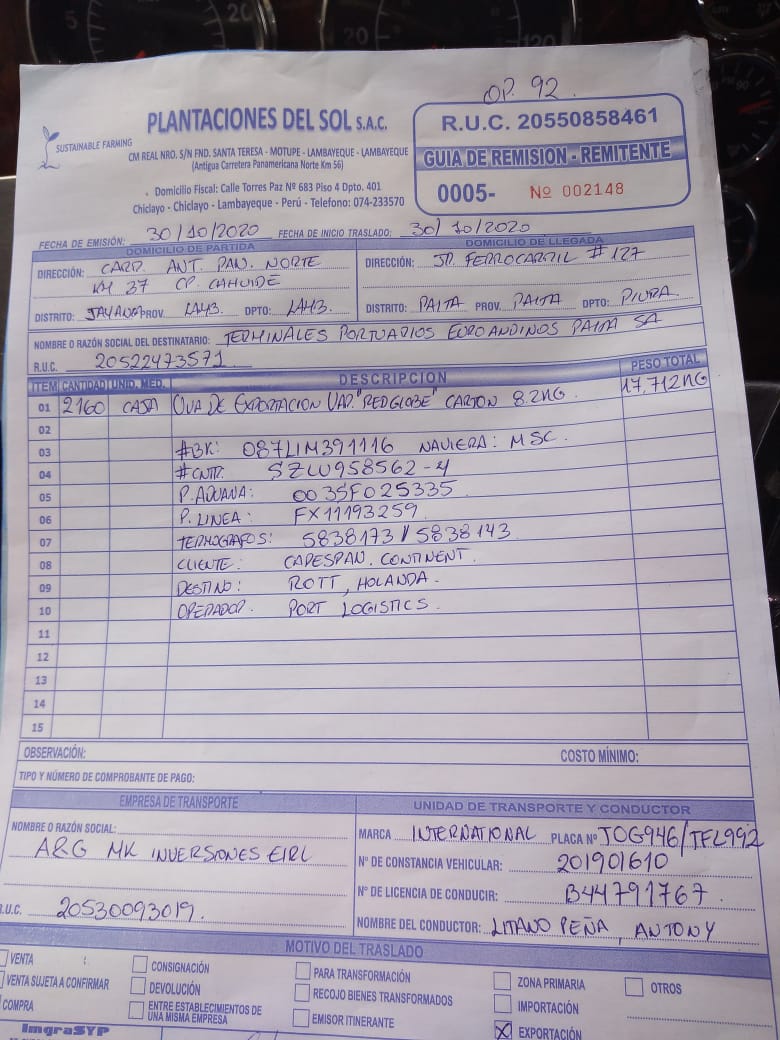 OP. 92.
SUSTAINABLE FARMING
PLANTACIONES DEL SOL S.A.C.
CM REAL NRO. S/N FND. SANTA TERESA - MOTUPE - LAMBAYEQUE - LAMBAYEQUE
(Antigua Carretera Panamericana Norte Km 56)
Domicilio Fiscal: Calle Torres Paz Nº 683 Piso 4 Dpto. 401
Chiclayo - Chiclayo - Lambayeque - Perú - Telefono: 074-233570
R.U.C. 20550858461
GUIA DE REMISION - REMITENTE
0005- Nº 002148
FECHA DE EMISIÓN: 30/10/2020 FECHA DE INICIO TRASLADO: 30/10/2020
DOMICILIO DE PARTIDA
DIRECCIÓN: CARR. ANT. PAN. NORTE
KM 37 CP. CAHUIDE
DISTRITO: JAYANCA PROV. LAMB. DPTO: LAMB.
DOMICILIO DE LLEGADA
DIRECCIÓN: JR. FERROCARRIL # 127
DISTRITO: PAITA PROV. PAITA DPTO: PIURA.
NOMBRE O RAZÓN SOCIAL DEL DESTINATARIO: TERMINALES PORTUARIOS EUROANDINOS PAITA SA
R.U.C. 20522473571
ITEM CANTIDAD UNID. MED. DESCRIPCION PESO TOTAL
01 2160 CAJA UVA DE EXPORTACION VAR. "REDGLOBE" CARTON 8.2KG. 17,712KG
02
03 #BK: 087LIM391116 NAVIERA: MSC.
04 #CNTR: SZLU958562-4
05 P. ADUANA: 0035F025335
06 P. LINEA: FX11193259
07 TERMOGRAFOS: 5838173 / 5838143
08 CLIENTE: CAPESPAN. CONTINENT.
09 DESTINO: ROTT, HOLANDA.
10 OPERADOR. PORT LOGISTICS.
11
12
13
14
15
OBSERVACIÓN: COSTO MÍNIMO:
TIPO Y NÚMERO DE COMPROBANTE DE PAGO:
EMPRESA DE TRANSPORTE
NOMBRE O RAZÓN SOCIAL:
A&G MK INVERSIONES EIRL
R.U.C. 20530093019.
UNIDAD DE TRANSPORTE Y CONDUCTOR
MARCA INTERNATIONAL PLACA Nº TOG946/TFL992
Nº DE CONSTANCIA VEHICULAR: 201901610
Nº DE LICENCIA DE CONDUCIR: B44791767.
NOMBRE DEL CONDUCTOR: LITANO PEÑA, ANTONY
MOTIVO DEL TRASLADO
VENTA
VENTA SUJETA A CONFIRMAR
COMPRA
CONSIGNACIÓN
DEVOLUCIÓN
ENTRE ESTABLECIMIENTOS DE
UNA MISMA EMPRESA
PARA TRANSFORMACIÓN
RECOJO BIENES TRANSFORMADOS
EMISOR ITINERANTE
ZONA PRIMARIA
IMPORTACIÓN
X EXPORTACIÓN
OTROS
ImgraSYP